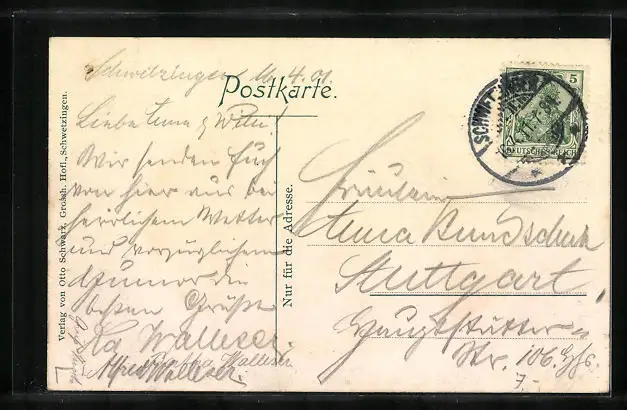 Schwetzingen 16.4.01.
Postkarte.
Liebe Anna &
Wir senden Euch
von hier aus bei
herrlichem Wetter
und vorzüglichem
Humor die
besten Grüße
Wallesen
Alfred Wallesen
Verlag von Otto Schwarz, Grossh. Hofl., Schwetzingen.
Nur für die Adresse.
SCHWETZINGEN
5
DEUTSCHES REICH
Fräulein
Anna Bundschuh
Stuttgart
Hauptstätter
Str. 106.
7.-